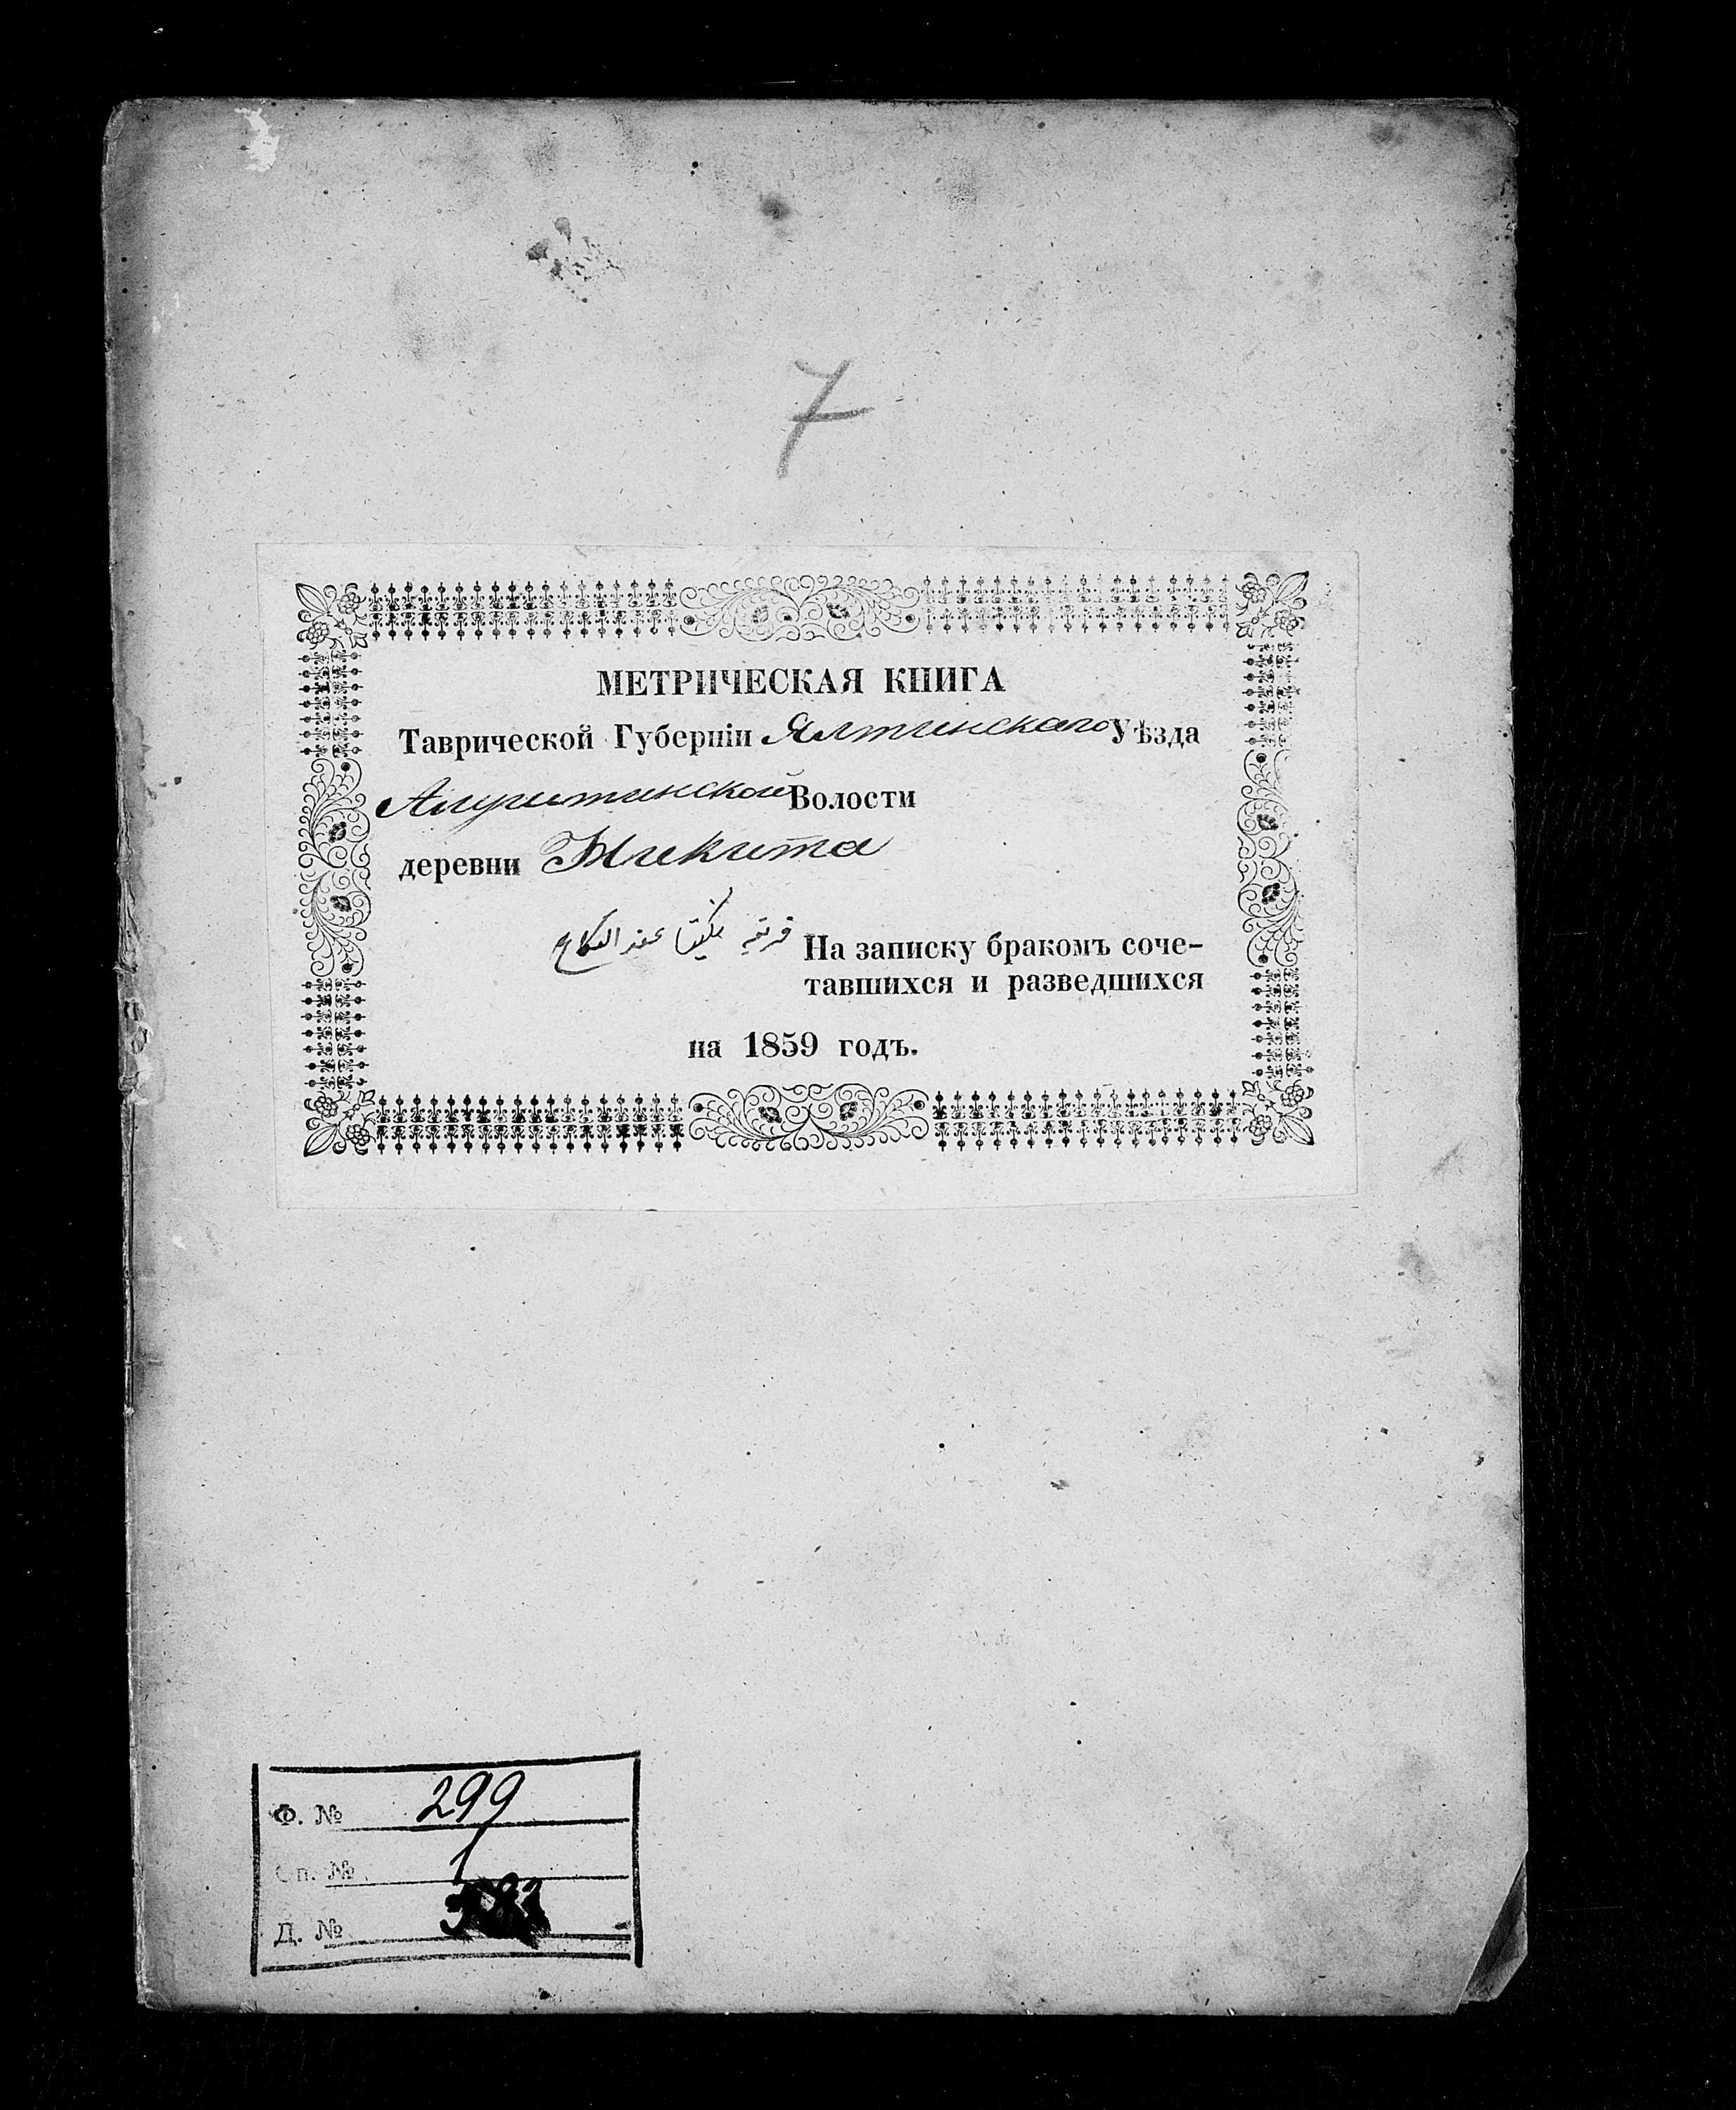 7
МЕТРИЧЕСКАЯ КНИГА
Таврической Губерніи Ялтинскаго Уѣзда
Алуштинской Волости
деревни Никита
قریۀ نكیتا عقد النكاح На записку бракомъ соче-
тавшихся и разведшихся
на 1859 годъ.
Ф. № 299
Оп. № 1
Д. №